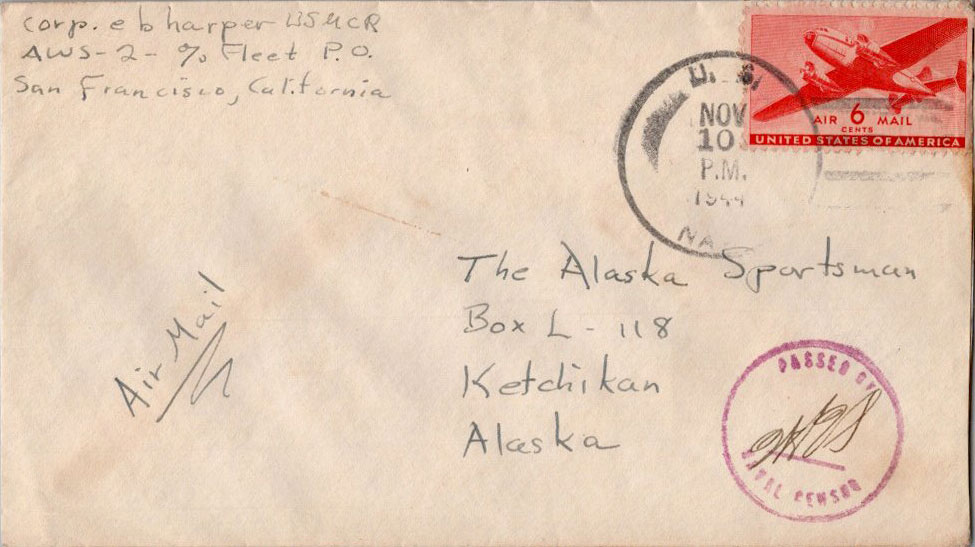 corp. e b harper USMCR
AWS-2- c/o Fleet P.O.
San Francisco, California
AIR 6 MAIL
CENTS
UNITED STATES OF AMERICA
U. S.
NOV
10
P.M.
1944
NA
The Alaska Sportsman
Box L - 118
Ketchikan
Alaska
Air Mail
PASSED BY
NAVAL CENSOR